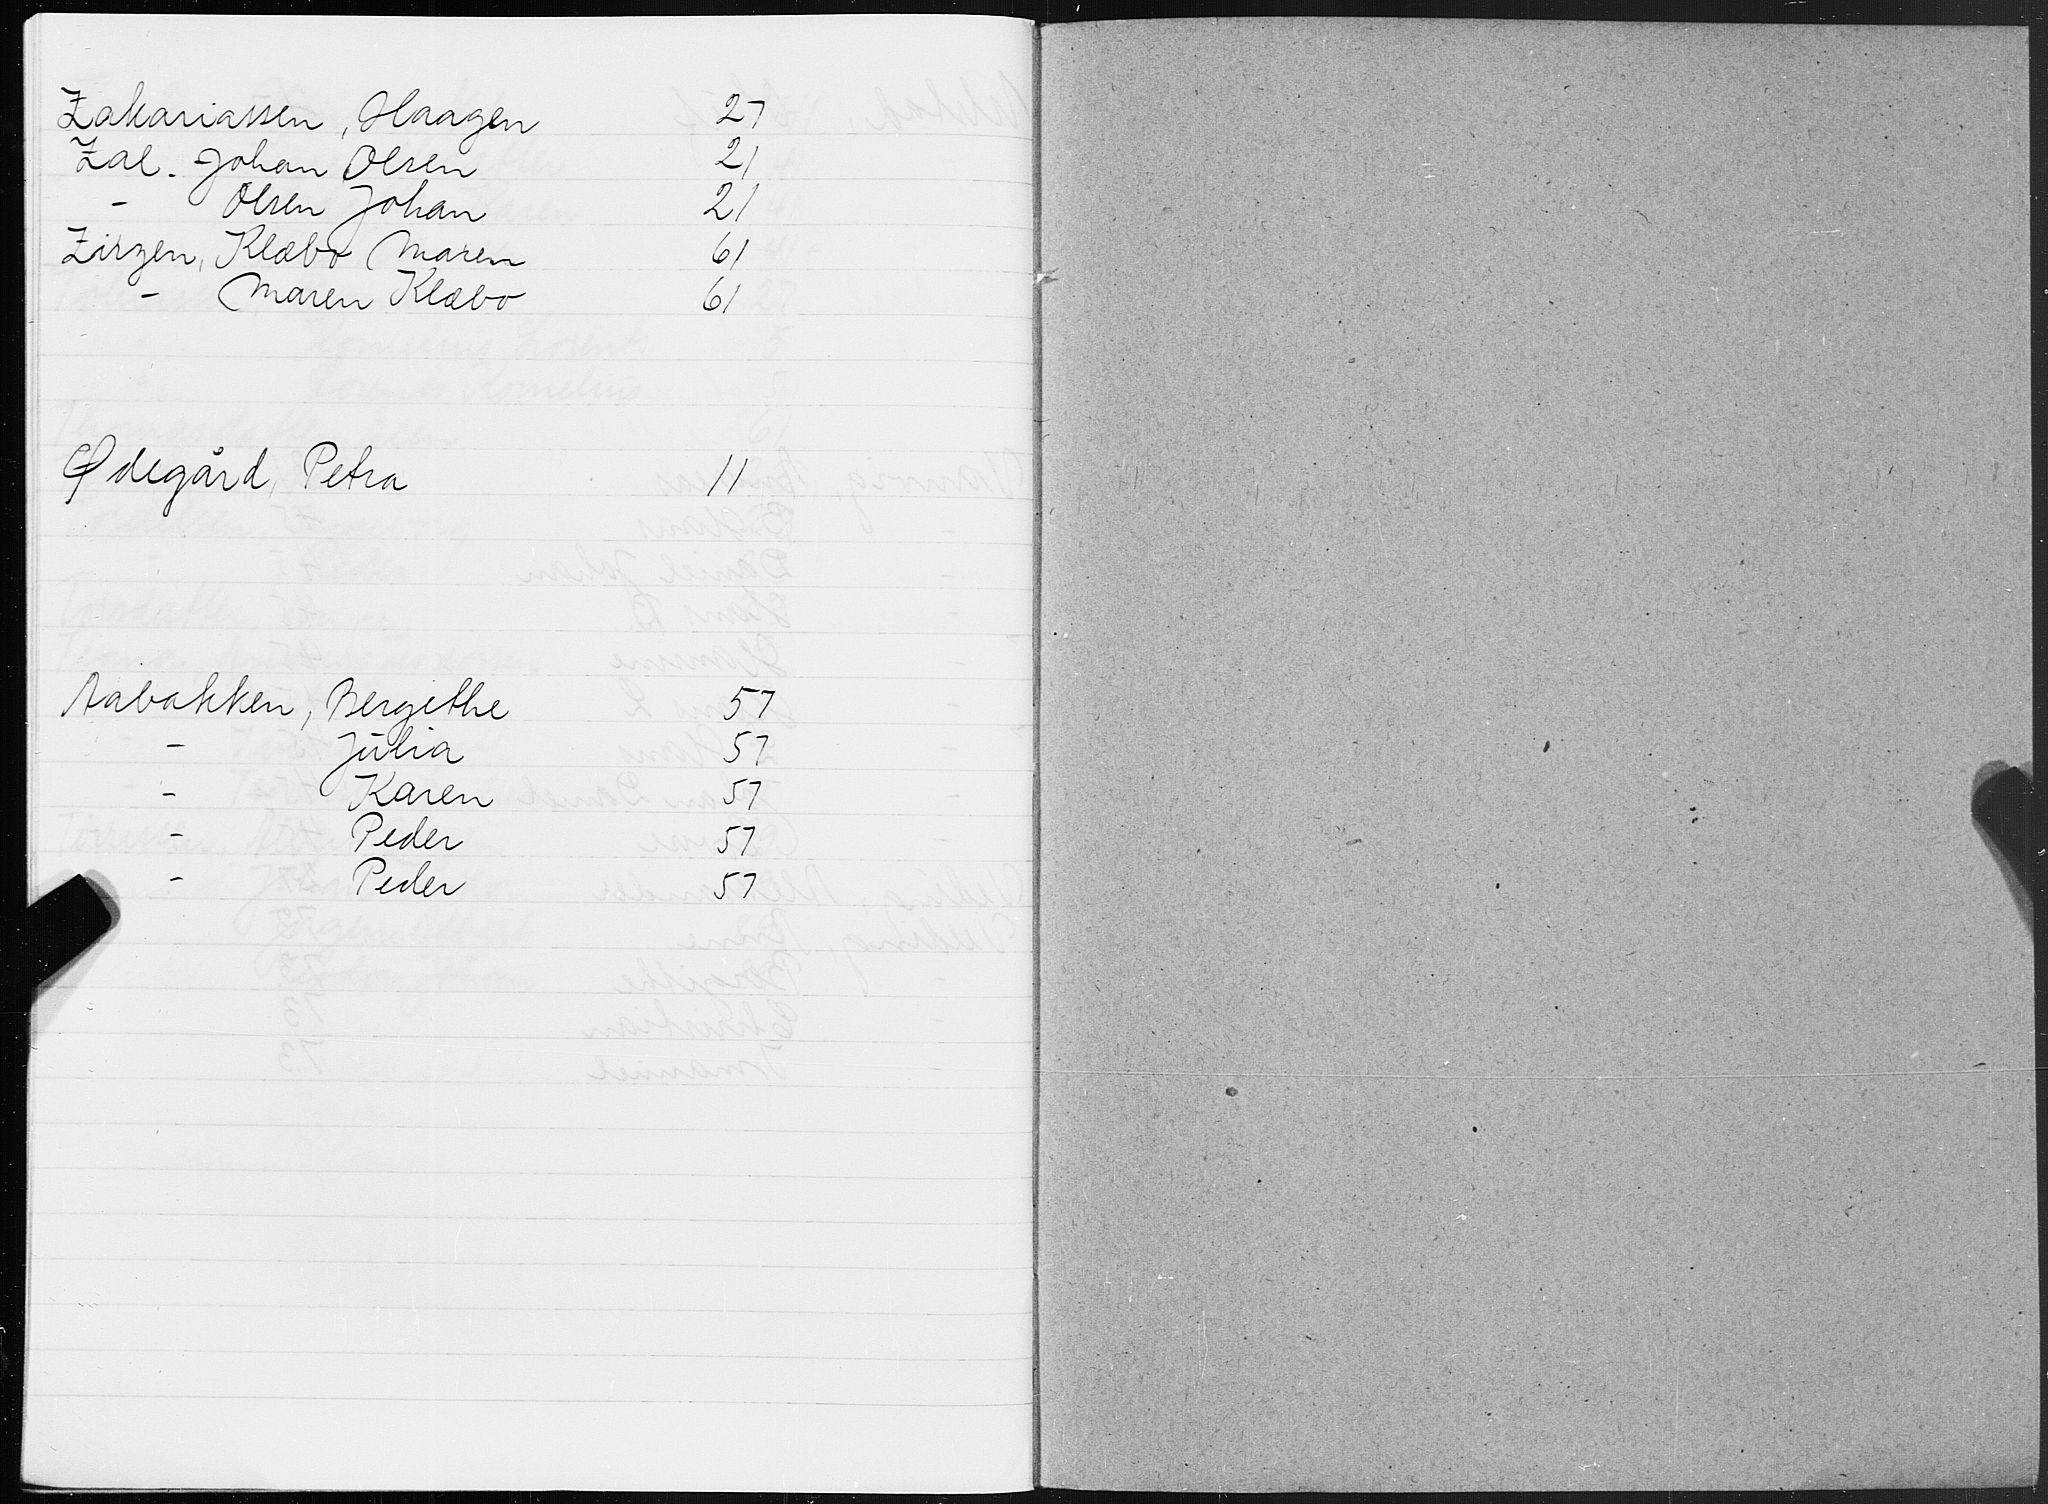 Zakariassen, Haagen 27
Zal. Johan Olsen 21
- Olsen Johan 21
Zirzen, Klæbo Maren 61
- Maren Klæbo 61
Ødegård, Petra 11
Aabakken, Bergithe 57
- Julia 57
- Karen 57
- Peder 57
- Peder 57